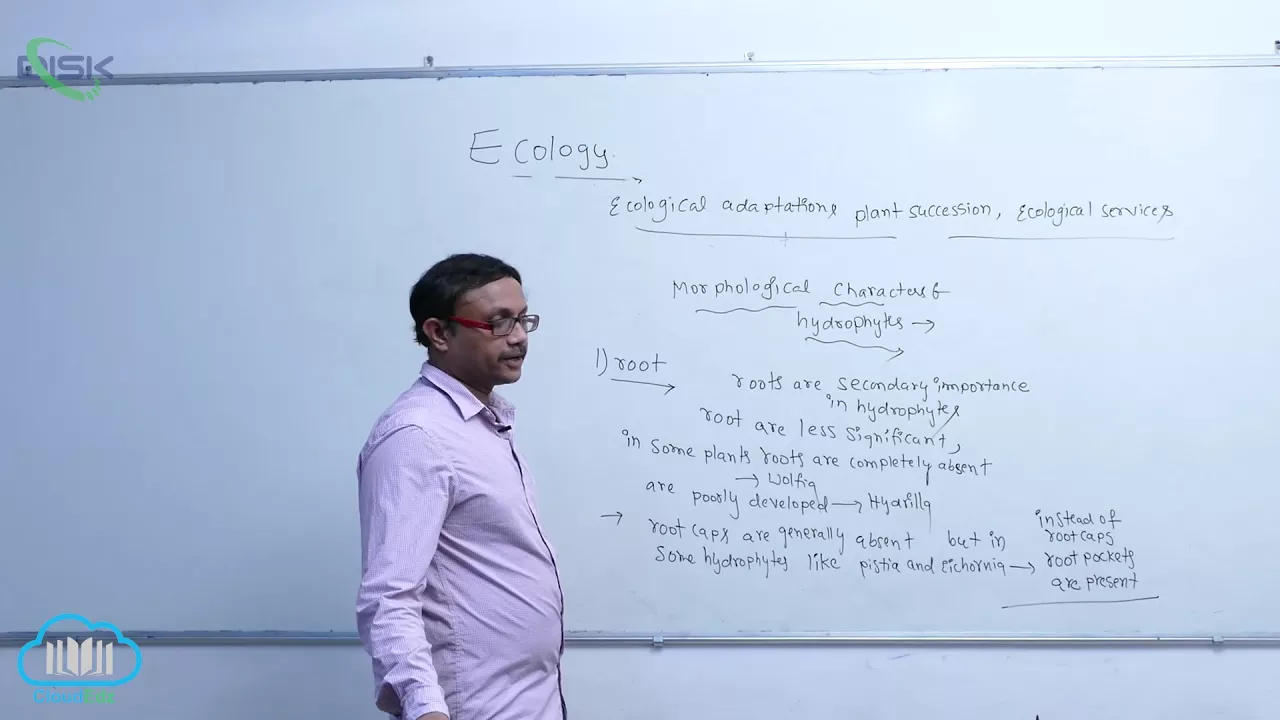 DISK
Ecology.
Ecological adaptations plant succession, Ecological services
Morphological Characters of
hydrophytes →
1) root
roots are secondary importance
in hydrophytes
root are less significant,
in some plants roots are completely absent
→ Wolfia
are poorly developed → Hydrilla
→ root caps are generally absent but in
some hydrophytes like pistia and Eichornia →
instead of
root caps
root pockets
are present
CloudEdu